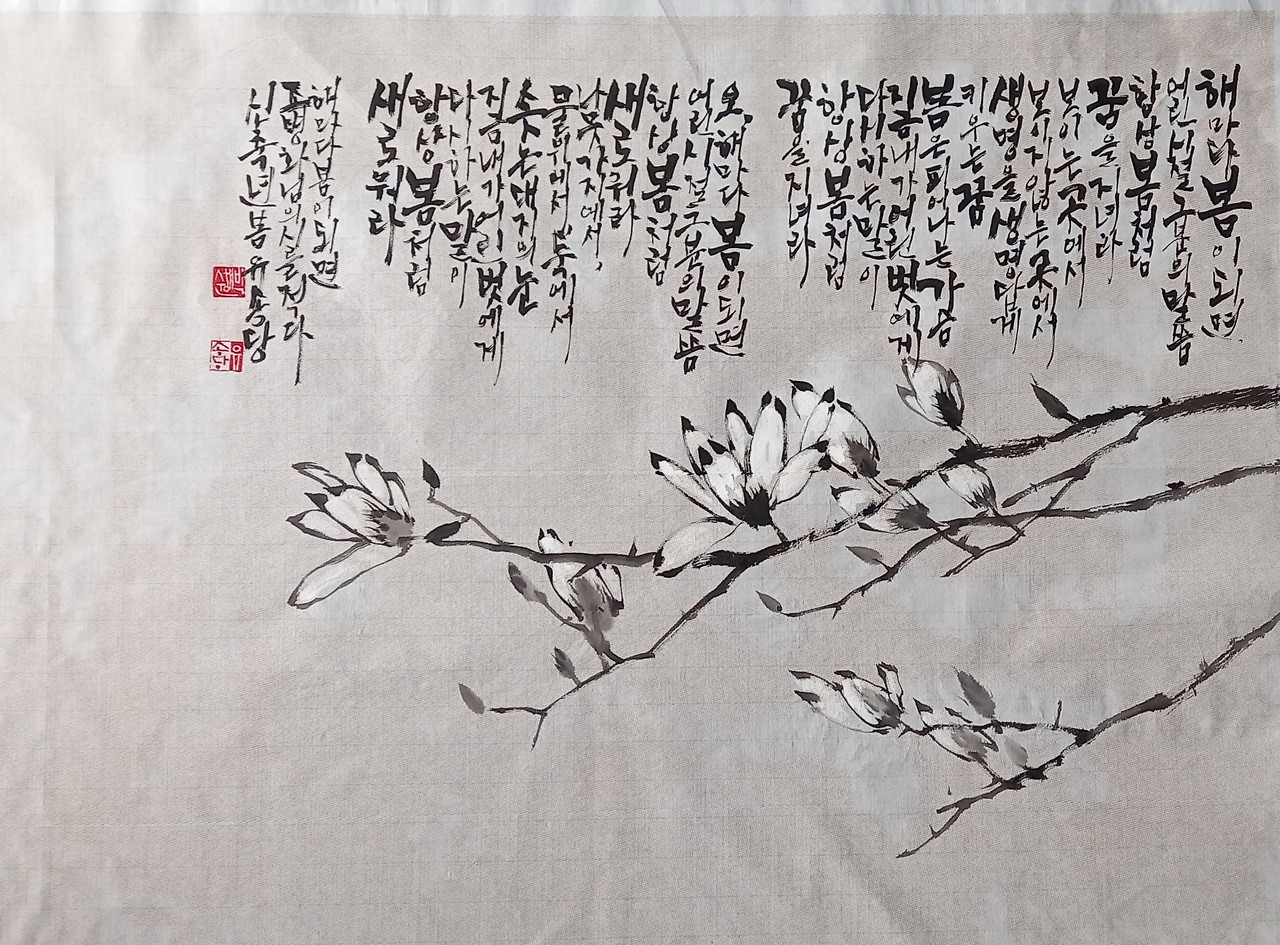 해마다 봄이 되면
어린 시절 그분의 말씀
항상 봄처럼
꿈을 지녀라
보이는 곳에서
보이지 않는 곳에서
생명을 생명답게
키우는 꿈
봄은 피어나는 가슴
지금 내가 어린 벗에게
다시 하는 말이
항상 봄처럼
꿈을 지녀라
오, 해마다 봄이 되면
어린 시절 그분의 말씀
항상 봄처럼
새로워라
나뭇가지에서,
물 위에서 둑에서
솟는 대지의 눈
지금 내가 어린 벗에게
다시 하는 말이
항상 봄처럼
새로워라
해마다 봄이 되면
조병화님의 시를 적다
신축년 봄 유송당